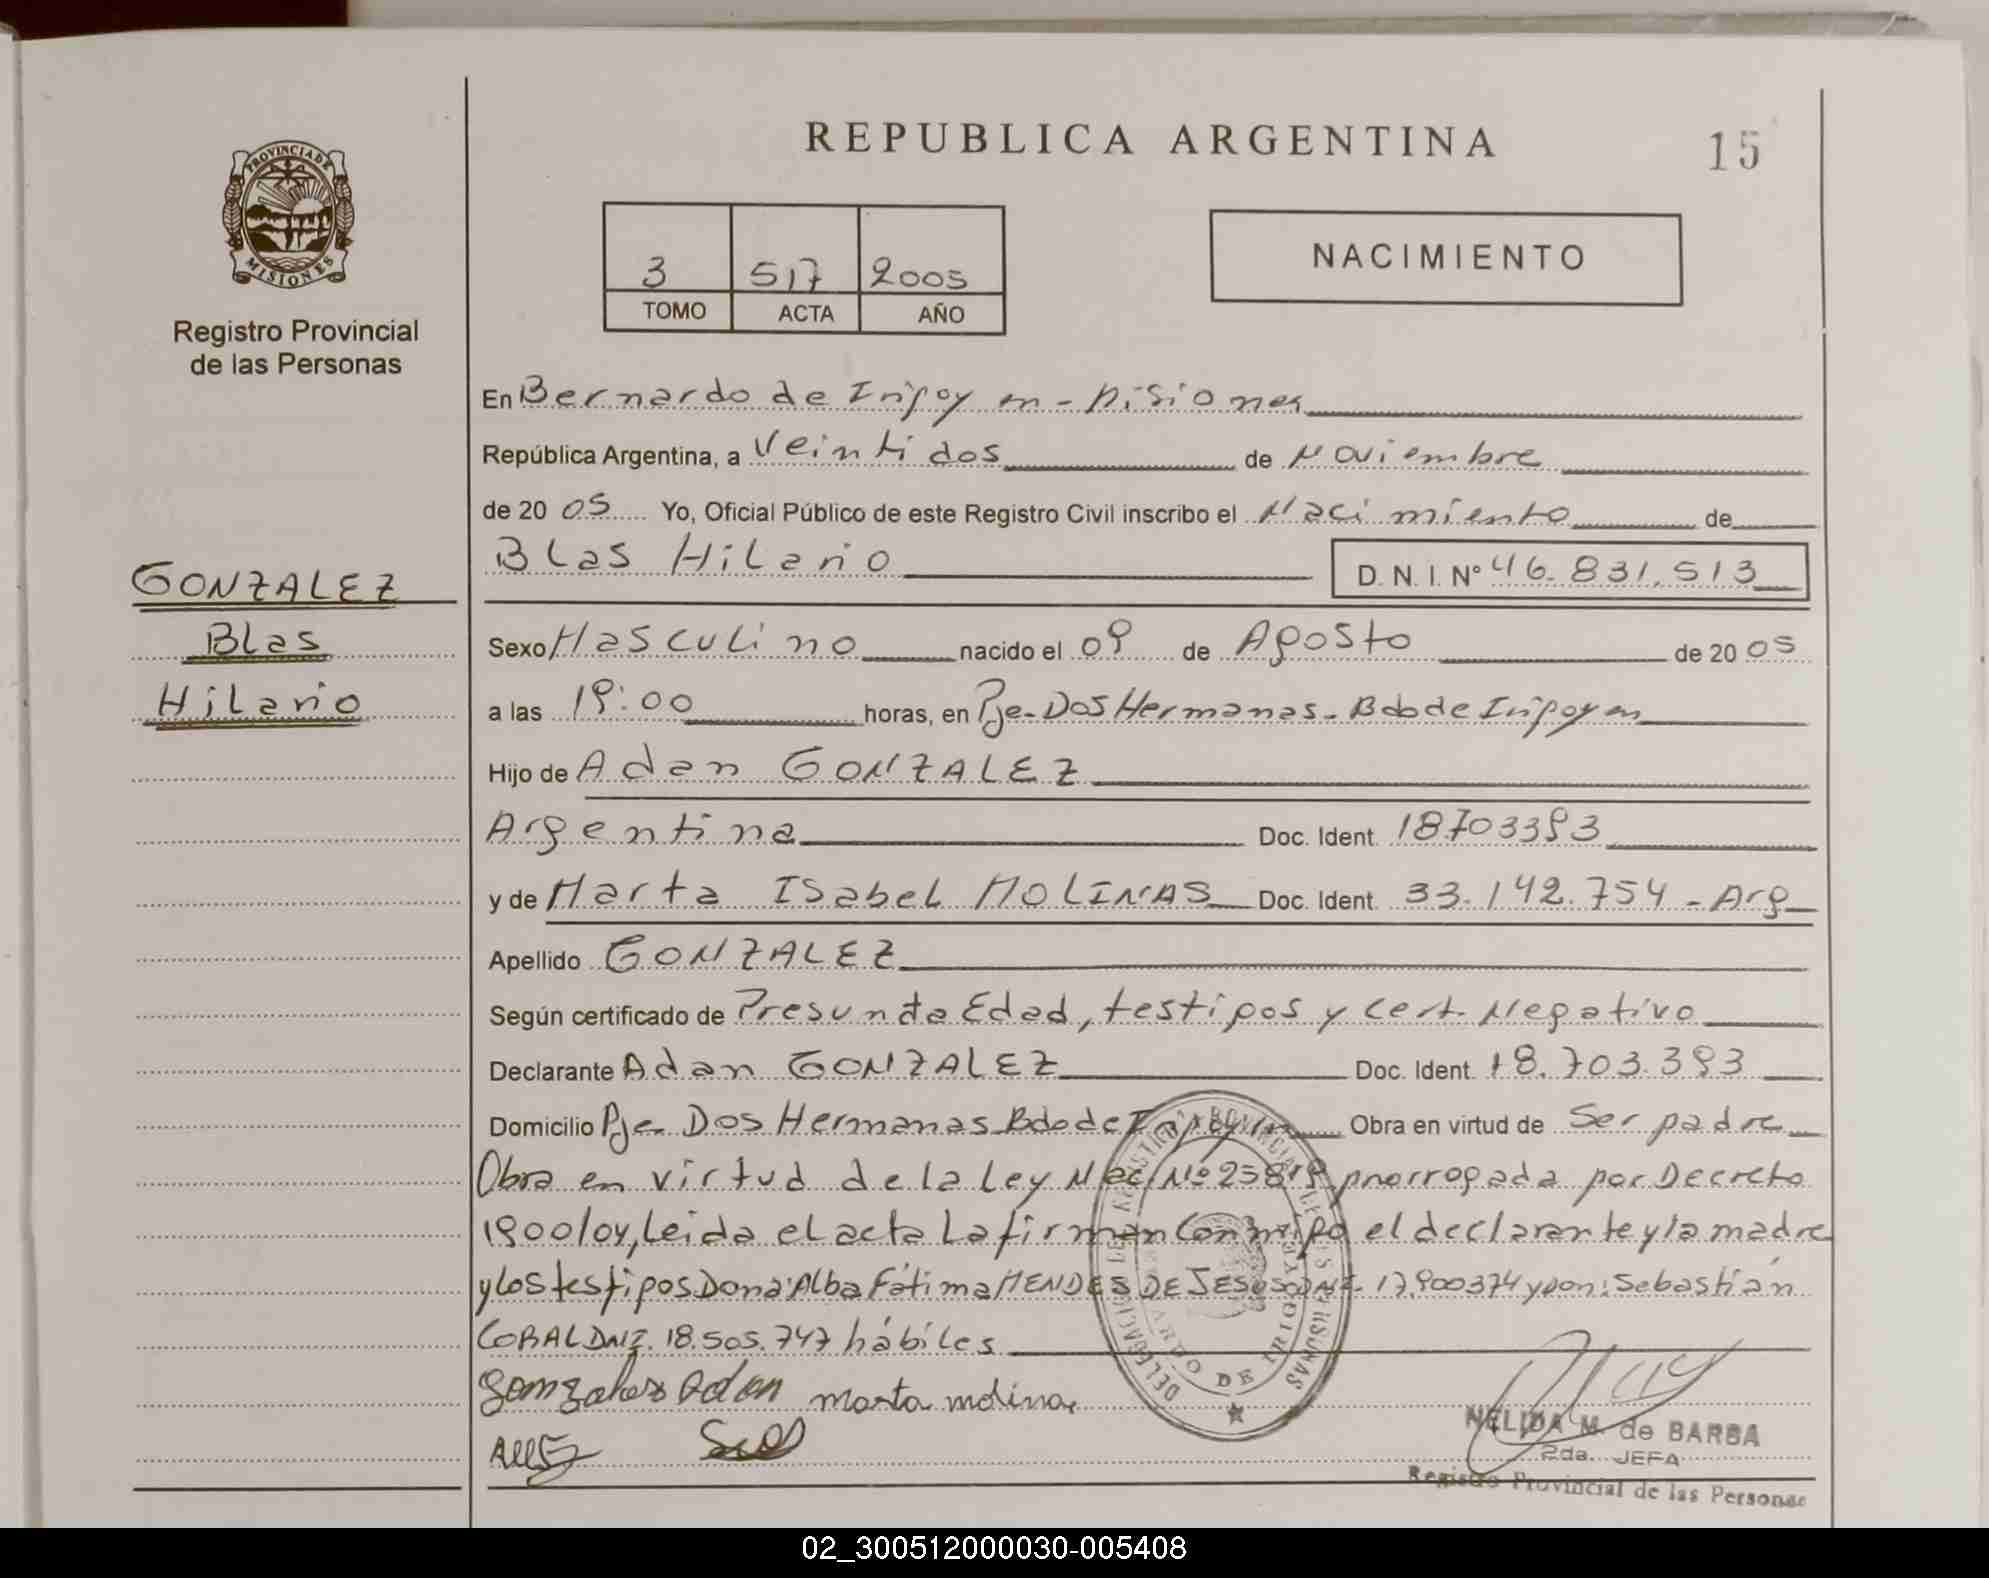 REPUBLICA ARGENTINA
15
PROVINCIA DE
MISIONES
Registro Provincial
de las Personas
3 517 2005
TOMO ACTA AÑO
NACIMIENTO
En Bernardo de Irigoyen - Misiones
República Argentina, a Veintidos de Noviembre
de 2005 Yo, Oficial Público de este Registro Civil inscribo el Nacimiento de
Blas Hilario D. N. I. Nº 46.831.513
GONZALEZ
Blas
Hilario
Sexo Masculino nacido el 09 de Agosto de 2005
a las 19:00 horas, en Pje. Dos Hermanas - Bdo de Irigoyen
Hijo de Adan GONZALEZ
Argentina Doc. Ident. 18703393
y de Marta Isabel MOLINAS Doc. Ident. 33.142.754 - Arg
Apellido GONZALEZ
Según certificado de Presunta Edad, testigos y cert. Negativo
Declarante Adan GONZALEZ Doc. Ident. 18.703.393
Domicilio Pje. Dos Hermanas Bdo de Irigoyen Obra en virtud de Ser padre
Obra en virtud de la Ley Nac. Nº 25819 prorrogada por Decreto
1900/04, Leida el acta La firman Conmigo el declarante y la madre
y los testigos Dona: Alba Fátima MENDES DE JESUS DNI. 17.900374 y Don: Sebastián
CORAL DNI. 18.505.747 hábiles
Gonzalez Adan marta molinas
NELIDA M. de BARBA
2da. JEFA
Registro Provincial de las Personas
02_300512000030-005408